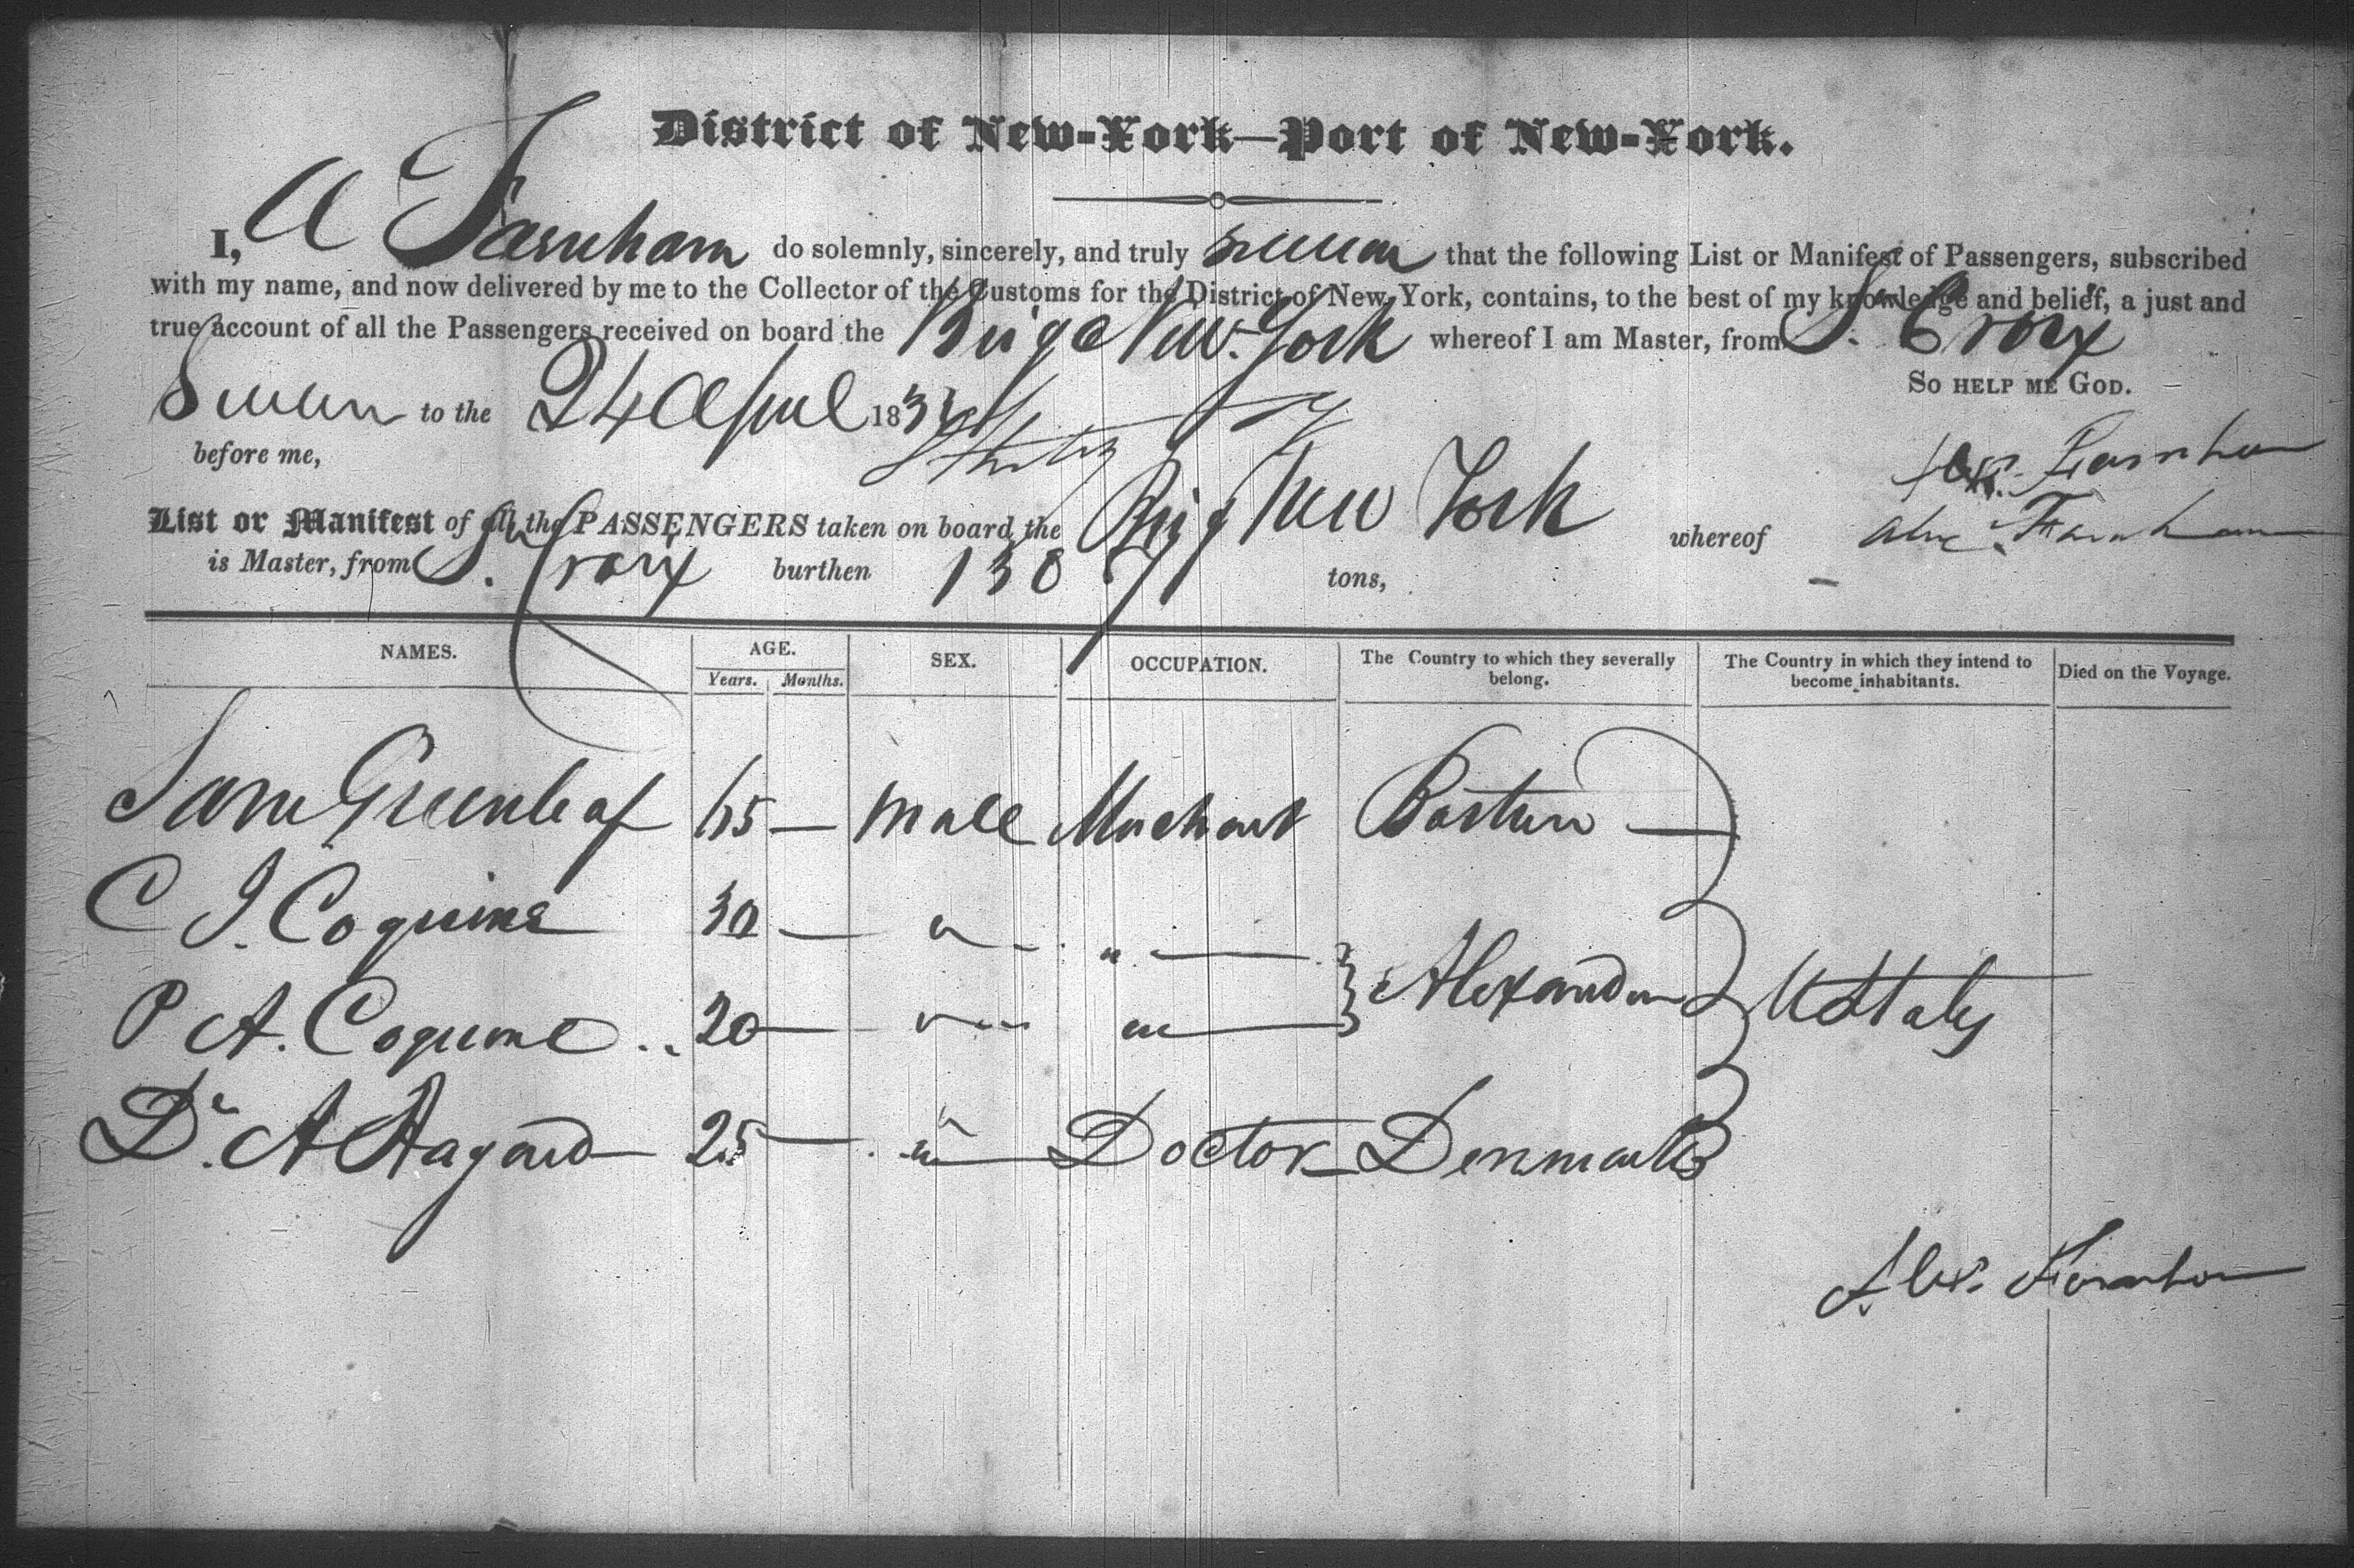 District of New-York—Port of New-York.
I, A Farnham do solemnly, sincerely, and truly swear that the following List or Manifest of Passengers, subscribed
with my name, and now delivered by me to the Collector of the Customs for the District of New York, contains, to the best of my knowledge and belief, a just and
true account of all the Passengers received on board the Brig New York whereof I am Master, from St. Croix
So help me God.
Sworn to the 24 April 183
before me,
Alex. Farnham
List or Manifest of all the PASSENGERS taken on board the Brig New York whereof Alex. Farnham
is Master, from St. Croix burthen 138 tons,
NAMES. AGE. SEX. OCCUPATION. The Country to which they severally belong. The Country in which they intend to become inhabitants. Died on the Voyage.
Years. Months.
Sam Greenleaf 65 — Male Merchant Boston —
C J. Coquine 30 — " " —
Alexandria U States
P A. Coquine 20 — " " —
Dr. A Hagard 25 — " Doctor Denmark
Alex. Farnham